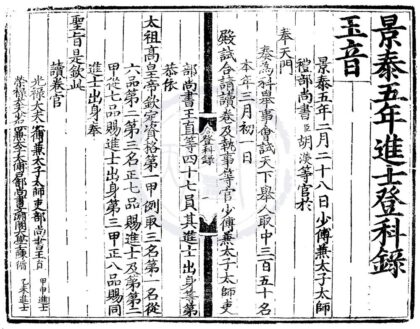 景泰五年進士登科錄
玉音
景泰五年二月二十八日少傅兼太子太師
禮部尚書臣胡濙等官於
奉天門
奏為科舉事會試天下舉人取中三百五十名
本年三月初一日
殿試合請讀卷及執事等官少傅兼太子太師吏
登科錄
部尚書王直等四十七員其進士出身等第
恭依
太祖高皇帝欽定資格第一甲例取三名第一名從
六品第二第三名正七品賜進士及第第二
甲從七品賜進士出身第三甲正八品賜同
進士出身奉
聖旨是欽此
讀卷官
光祿大夫少傅兼太子太師吏部尚書王直 甲申進士
榮祿大夫少 陳循 乙未進士